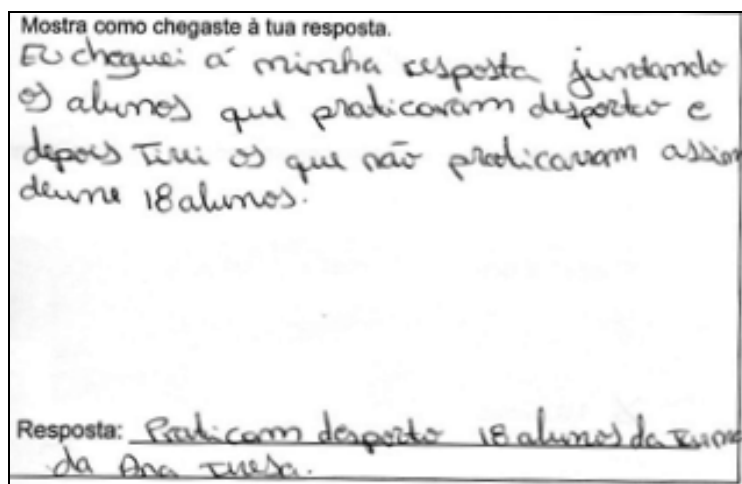 Mostra como chegaste à tua resposta.
Eu cheguei á minha resposta juntando
os alunos que praticavam desporto e
depois Tirei os que não praticavam assim
deume 18 alunos.
Resposta: Praticam desporto 18 alunos da Turma
da Ana Teresa.